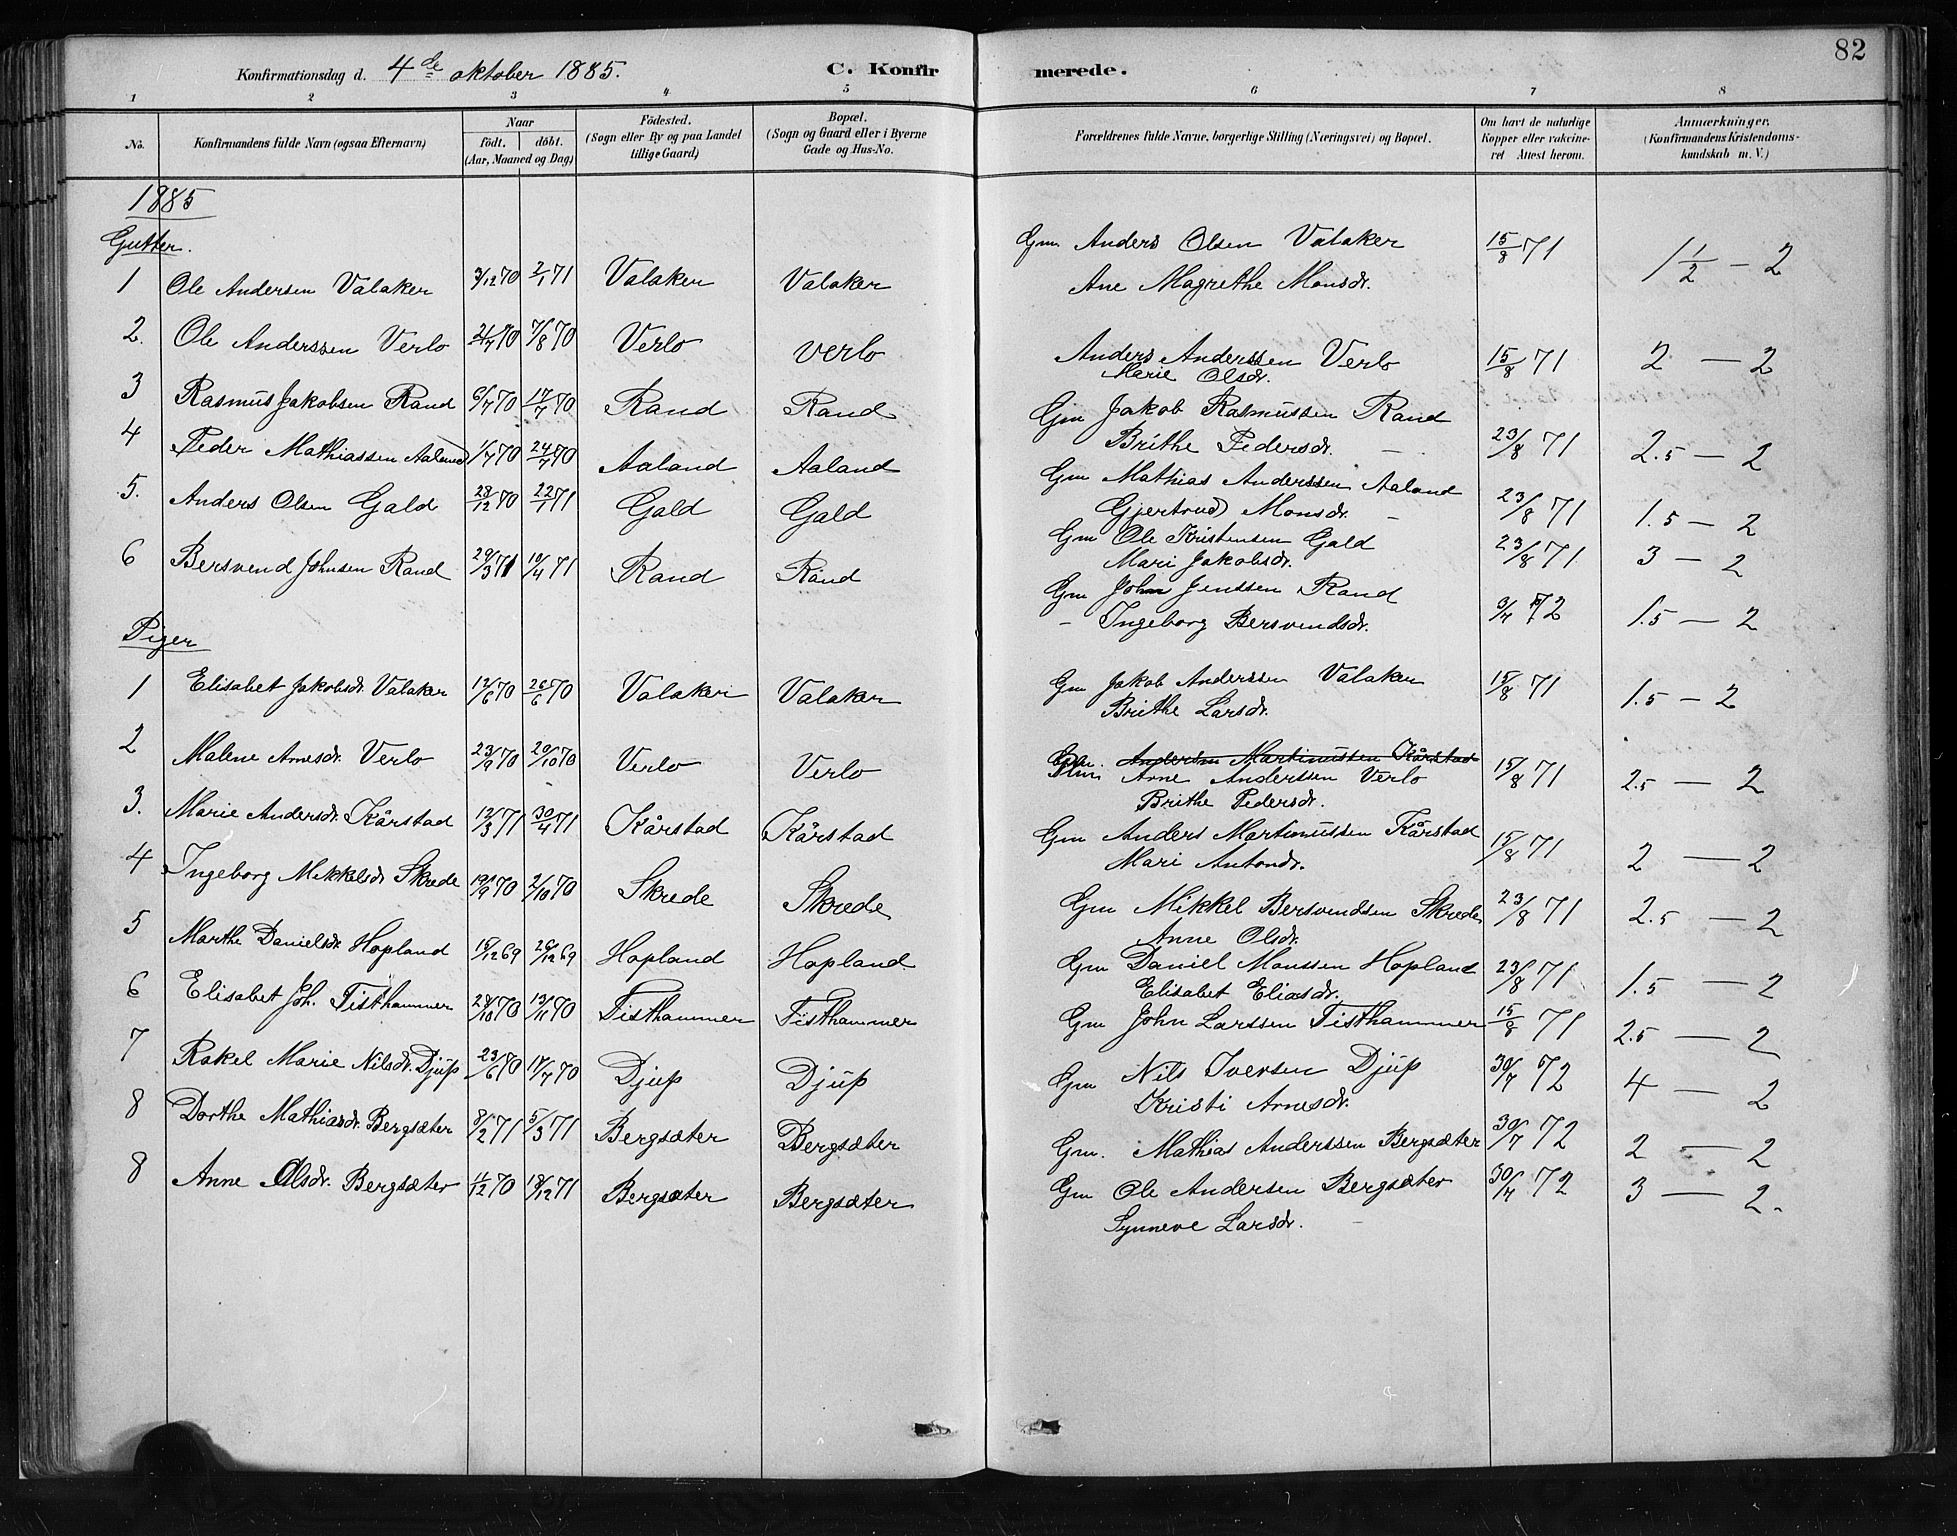 82
Konfirmationsdag d. 4de oktober 1885.
C. Konfirmerede.
1 2 3 4 5 6 7 8
No.
Konfirmandens fulde Navn (ogsaa Efternavn)
Naar
födt. döbt.
(Aar, Maaned og Dag)
Födested.
(Sogn eller By og paa Landet
tillige Gaard)
Bopæl.
(Sogn og Gaard eller i Byerne
Gade og Hus-No.
Forældrenes fulde Navne, borgerlige Stilling (Næringsvei) og Bopæl.
Om havt de naturlige
Kopper eller vakcine-
ret Attest herom.
Anmærkninger.
(Konfirmandens Kristendoms-
kundskab m. V.)
1885
Gutter.
1 Ole Andersen Valaker 3/12 70 2/1 71 Valaker Valaker Gm Anders Olsen Valaker 15/8 71 1 1/2 - 2
Ane Magrethe Monsdr.
2. Ole Anderssen Verlo 21/7 70 7/8 70 Verlo Verlo Anders Anderssen Verlo 15/8 71 2 - 2
Marie Olsdr.
3 Rasmus Jakobsen Rand 6/7 70 17/7 70 Rand Rand Gm Jakob Rasmussen Rand
Brithe Pedersdr. - 23/8 71 2.5 - 2
4 Peder Mathiassen Aaland 1/7 70 24/7 70 Aaland Aaland Gm Mathias Anderssen Aaland
Gjertrud Monsdr. - 23/8 71 1.5 - 2
5. Anders Olsen Gald 28/12 70 22/1 71 Gald Gald Gm Ole Kristensen Gald
Mari Jakobsdr. 23/8 71 3 - 2
6 Bersvend Johnsen Rand 29/3 71 10/4 71 Rand Rand Gm John Jenssen Rand
- Ingeborg Bersvendsdr. 72 1.5 - 2
Piger
1 Elisabet Jakobsdr. Valaker 12/6 70 26/6 70 Valaker Valaker Gm Jakob Anderssen Valaker 15/8 71 1.5 - 2
Brithe Larsdr.
2 Malene Arnesdr. Verlo 23/9 70 20/10 70 Verlo Verlo Gm. Andersen Martinussen Kårstad
Arne Anderssen Verlo 15/8 71 2.5 - 2
Brithe Pedersdr.
3. Marie Andersdr. Kårstad 12/3 71 30/4 71 Kårstad Kårstad Gm Anders Martinussen Kårstad 15/8 71 2 - 2
Mari Antondr.
4 Ingeborg Mikkelsdr Skrede 19/9 70 2/10 70 Skrede Skrede Gm Mikkel Bersvendsen Skrede 23/8 71 2.5 - 2
Anne Olsdr.
5 Marthe Danielsdr. Hopland 15/12 69 26/12 69 Hopland Hopland Gm Daniel Monssen Hopland 23/8 71 1.5 - 2
Elisabet Eliasdr.
6 Elisabet Joh. Tisthammer 24/10 70 13/11 70 Tisthammer Tisthammer Gm John Larssen Tisthammer 15/8 71 2.5 - 2
7 Rakel Marie Nilsdr. Djup 23/6 70 17/7 70 Djup Djup Gm Nils Iversen Djup 30/7 72 4 - 2
Kristi Arnesdr.
8 Dorthe Mathiasdr. Bergsæter 8/2 71 5/3 71 Bergsæter Bergsæter Gm. Mathias Anderssen Bergsæter 30/7 72 2 - 2
8 Anne Olsdr. Bergsæter 11/12 70 71 Bergsæter Bergsæter Gm Ole Andersen Bergsæter 30/7 72 3 - 2.
Synneve Larsdr.